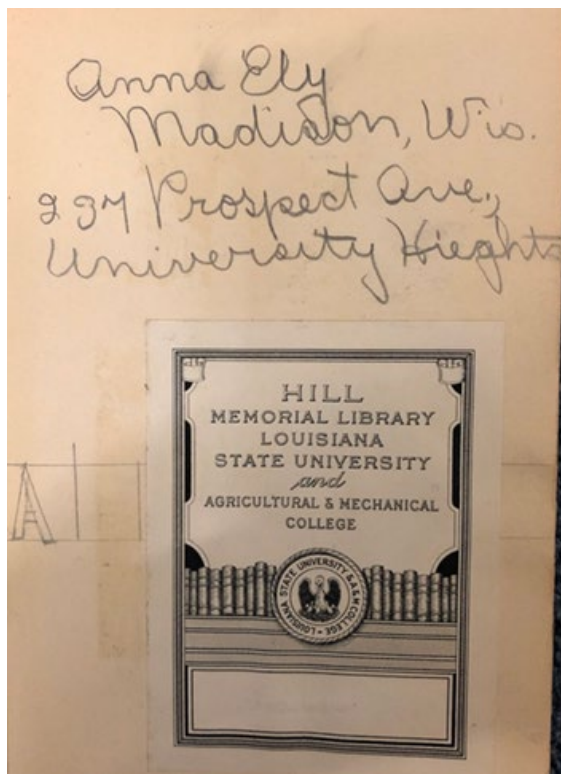 Anna Ely
Madison, Wis.
237 Prospect Ave.,
University Hieghts
A
HILL
MEMORIAL LIBRARY
LOUISIANA
STATE UNIVERSITY
and
AGRICULTURAL & MECHANICAL
COLLEGE
LOUISIANA STATE UNIVERSITY & A & M COLLEGE